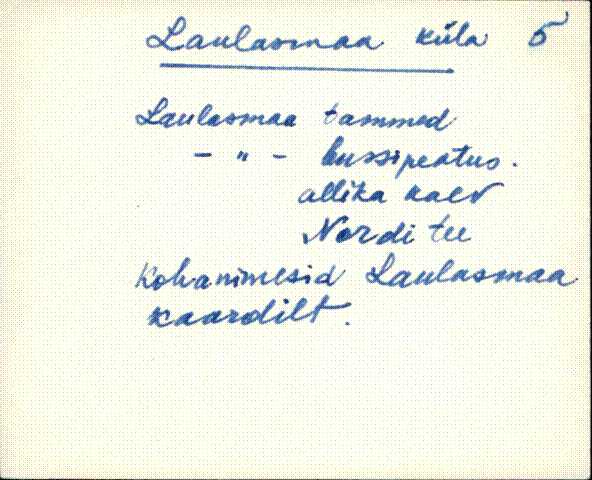 Laulasmaa küla 5
Laulasmaa tammed
- " - bussipeatus.
allika kaev
Nordi tee
Kohanimesid Laulasmaa
kaardilt.